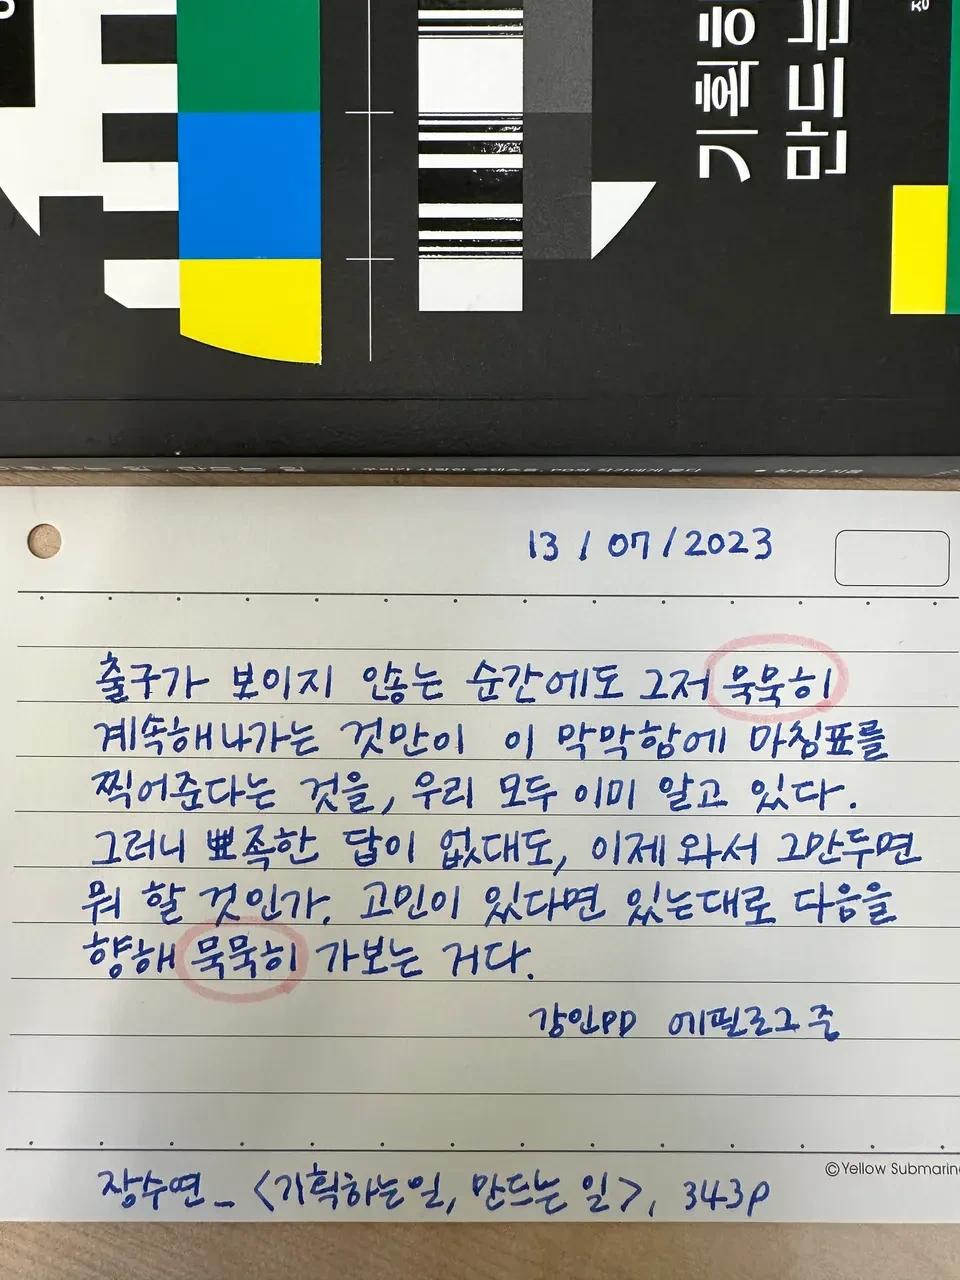 기획하
만드는
13 / 07 / 2023
출구가 보이지 않는 순간에도 그저 묵묵히
계속해나가는 것만이 이 막막함에 마침표를
찍어준다는 것을, 우리 모두 이미 알고 있다.
그러니 뾰족한 답이 없대도, 이제 와서 그만두면
뭐 할 것인가. 고민이 있다면 있는대로 다음을
향해 묵묵히 가보는 거다.
강인PD 에필로그 중
©Yellow Submarine
장수연_ <기획하는 일, 만드는 일>, 343p